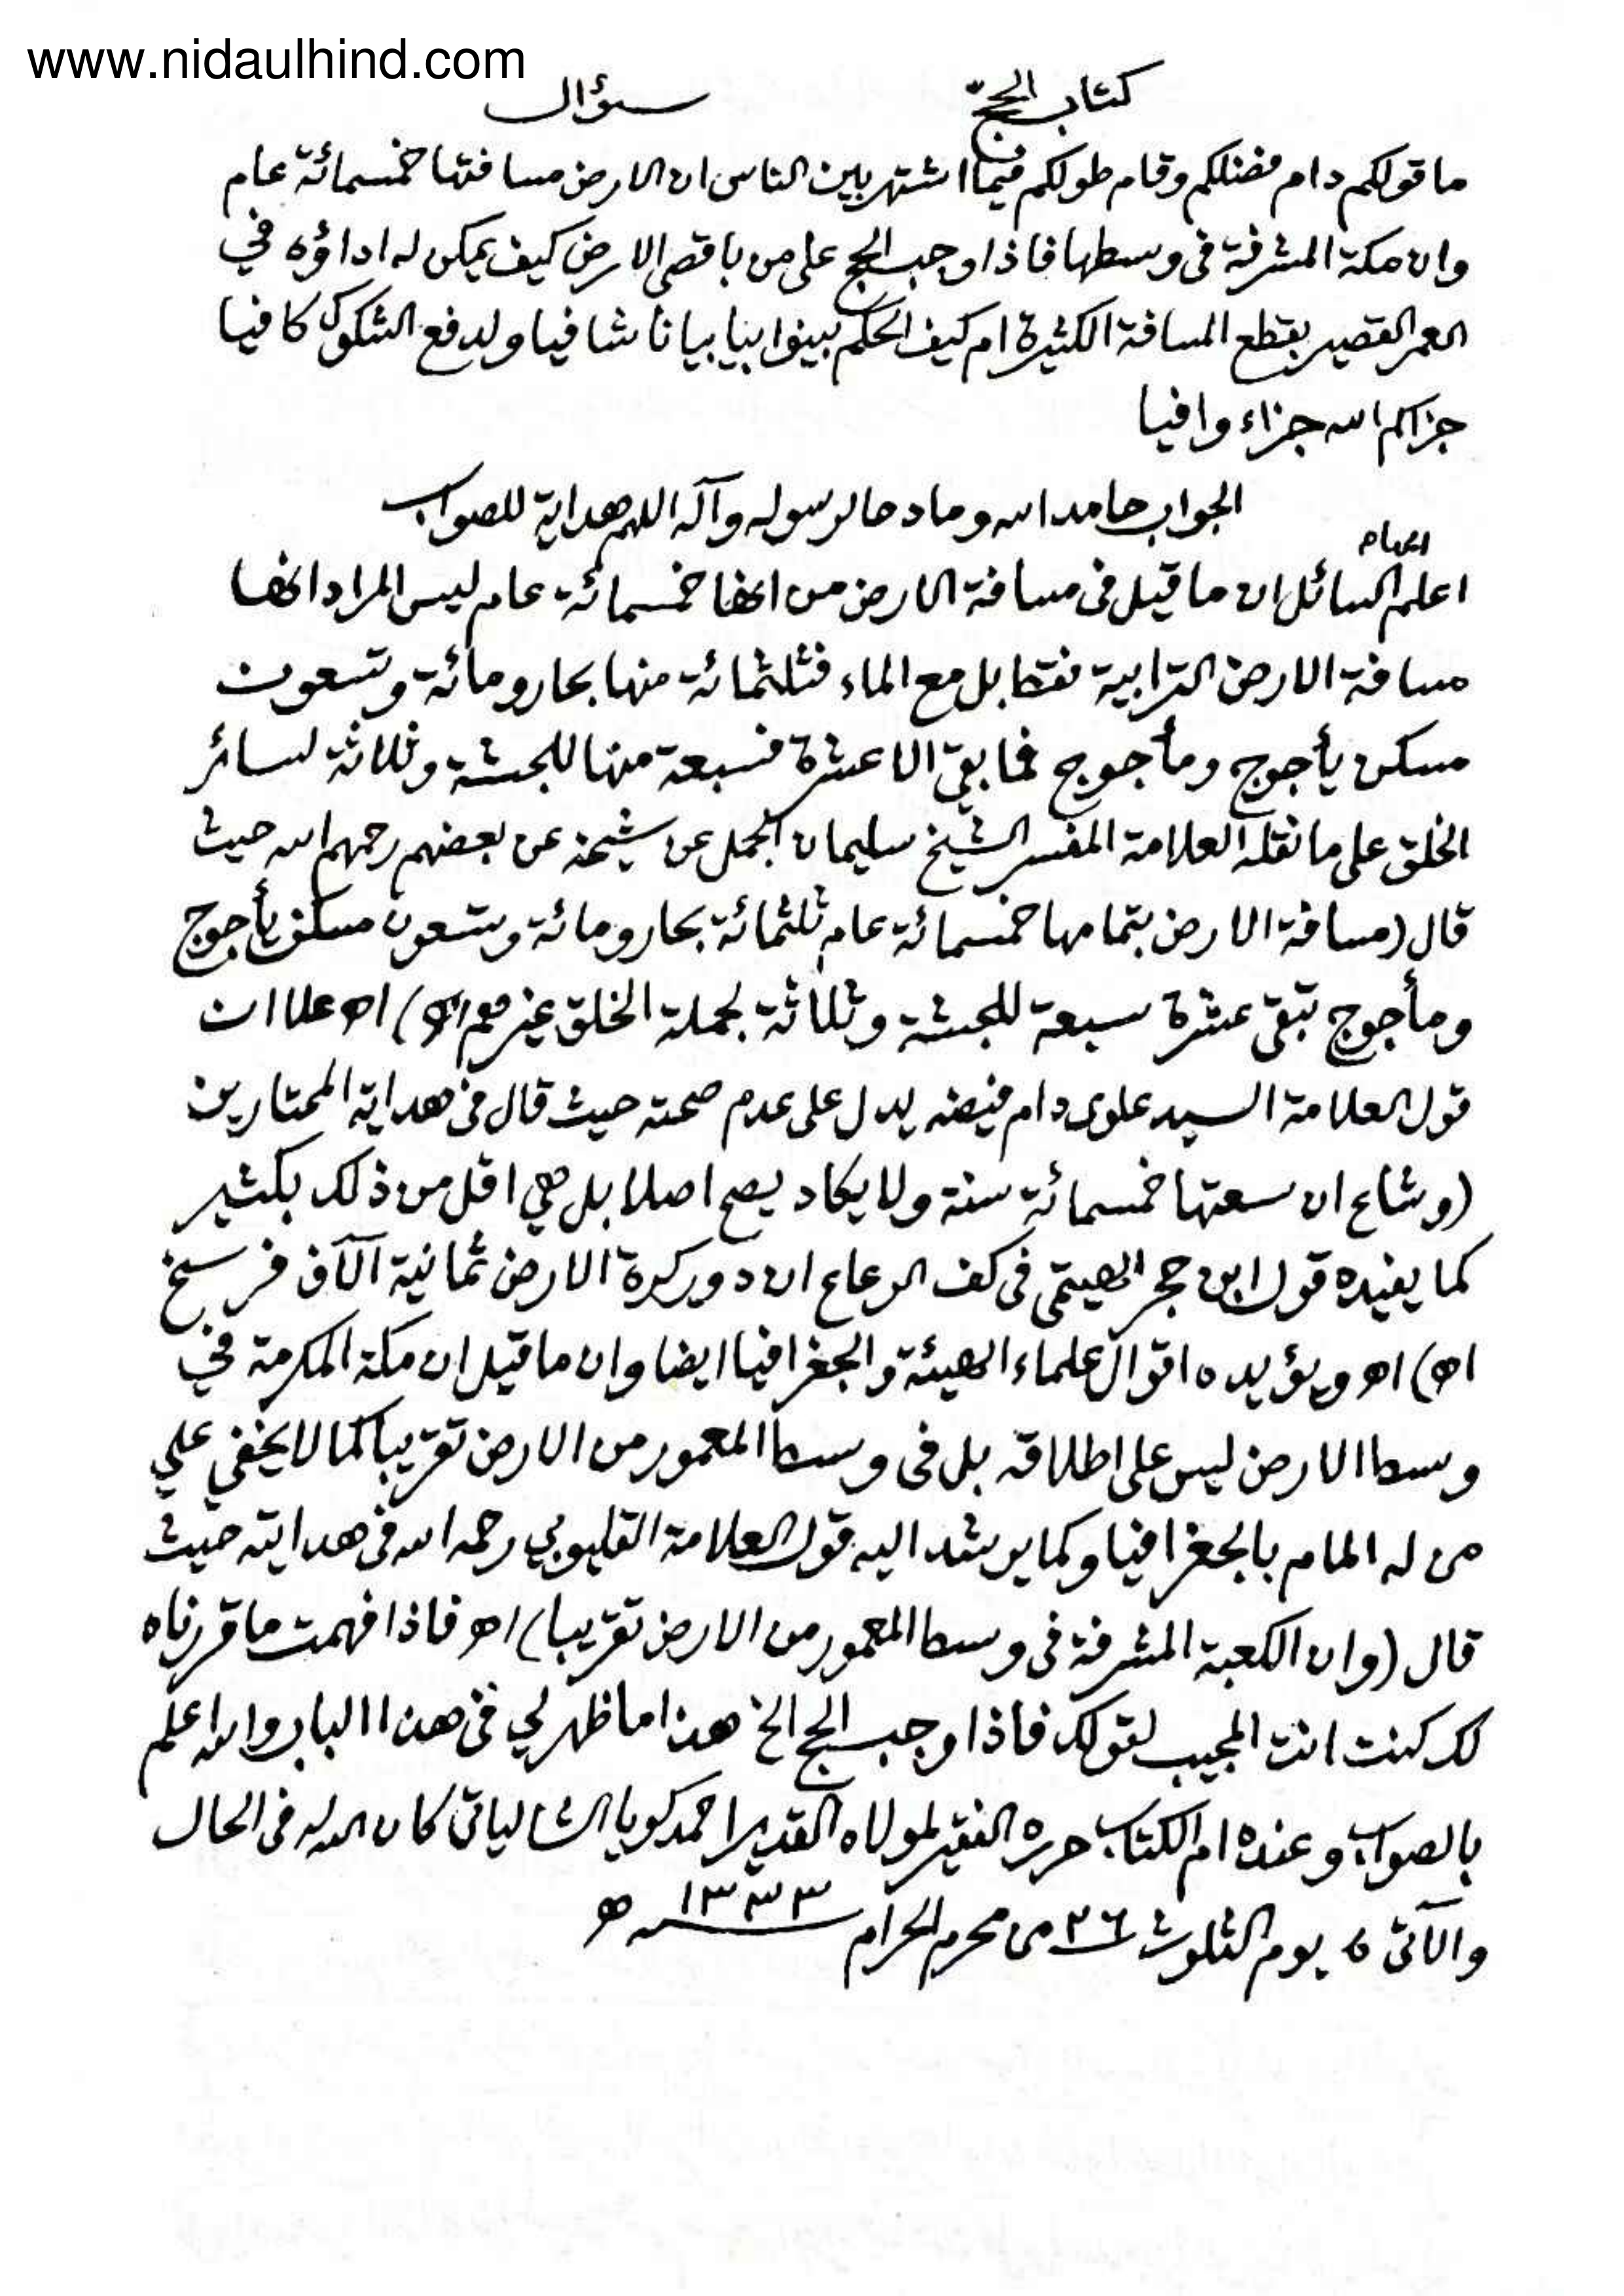 www.nidaulhind.com
كتاب الحج سؤال
ما قولكم دام فضلكم وقام طولكم فيما اشتهر بين الناس ان الارض مسافتها خمسمائة عام
وان مكة المشرفة في وسطها فاذا وجب الحج على من باقصى الارض كيف يمكن له اداؤه في
العمر القصير بقطع المسافة الكثيرة ام كيف الحكم بينوا بيانا شافيا ولدفع الشكوك كافيا
جزاكم الله جزاء وافيا
الجواب حامدا لله ومادحا لرسوله وآله اللهم هداية للصواب
اعلم ايها السائل ان ما قيل في مسافة الارض من انها خمسمائة عام ليس المراد انها
مسافة الارض الترابية فقط بل مع الماء فثلثمائة منها بحار ومائة وتسعون
مسكن يأجوج ومأجوج فما بقي الا عشرة فسبعة منها للحبشة وثلاثة لسائر
الخلق على ما نقله العلامة المفسر الشيخ سليمان الجمل عن شيخه عن بعضهم رحمهم الله حيث
قال (مسافة الارض بتمامها خمسمائة عام ثلثمائة بحار ومائة وتسعون مسكن يأجوج
ومأجوج تبقى عشرة سبعة للحبشة وثلاثة لجملة الخلق غيرهم اه) اه علا ان
قول العلامة السيد علوي دام فيضه يدل على عدم صحته حيث قال في هداية المحتارين
(وشاع ان سعتها خمسمائة سنة ولا يكاد يصح اصلا بل هي اقل من ذلك بكثير
كما يفيده قول ابن حجر الهيتمي في كف الرعاع ان دور كرة الارض ثمانية آلاف فرسخ
اه) اه ويؤيده اقوال علماء الهيئة والجغرافيا ايضا وان ما قيل ان مكة المكرمة في
وسط الارض ليس على اطلاقه بل في وسط المعمور من الارض تقريبا كما لا يخفي علي
من له المام بالجغرافيا وكما يرشد اليه قول العلامة القليوبي رحمه الله في هدايته حيث
قال (وان الكعبة المشرفة في وسط المعمور من الارض تقريبا) اه فاذا فهمت ما قررناه
لك كنت انت المجيب لقولك فاذا وجب الحج الخ هذا ما ظهر لي في هذا الباب والله اعلم
بالصواب وعنده ام الكتاب حرره الفقير لمولاه القدير احمد كويا الشالياتي كان الله له في الحال
والآتي يوم الثلوث ٢٦ من محرم الحرام ١٣٣٣ ه